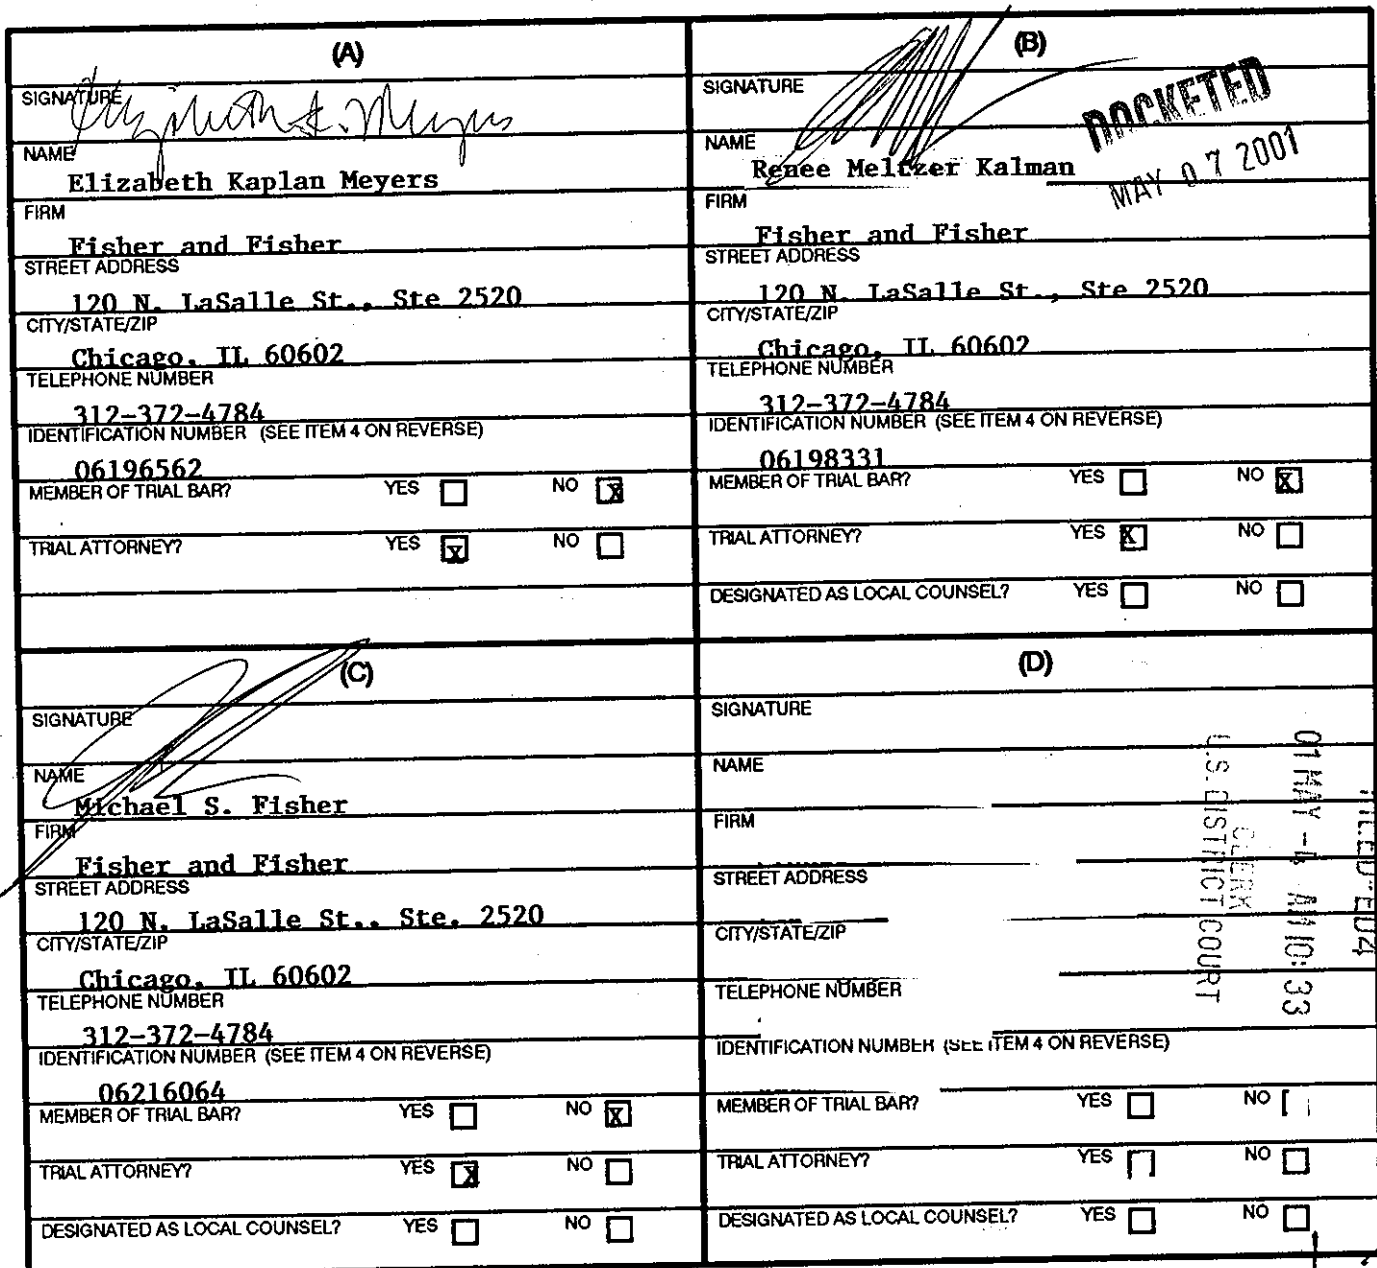 (A)
SIGNATURE Elizabeth K. Meyers
NAME
Elizabeth Kaplan Meyers
FIRM
Fisher and Fisher
STREET ADDRESS
120 N. LaSalle St., Ste 2520
CITY/STATE/ZIP
Chicago, IL 60602
TELEPHONE NUMBER
312-372-4784
IDENTIFICATION NUMBER (SEE ITEM 4 ON REVERSE)
06196562
MEMBER OF TRIAL BAR? YES NO X
TRIAL ATTORNEY? YES X NO
(B)
SIGNATURE
DOCKETED
MAY 07 2001
NAME
Renee Meltzer Kalman
FIRM
Fisher and Fisher
STREET ADDRESS
120 N. LaSalle St., Ste 2520
CITY/STATE/ZIP
Chicago, IL 60602
TELEPHONE NUMBER
312-372-4784
IDENTIFICATION NUMBER (SEE ITEM 4 ON REVERSE)
06198331
MEMBER OF TRIAL BAR? YES NO X
TRIAL ATTORNEY? YES X NO
DESIGNATED AS LOCAL COUNSEL? YES NO
(C)
SIGNATURE
NAME
Michael S. Fisher
FIRM
Fisher and Fisher
STREET ADDRESS
120 N. LaSalle St., Ste. 2520
CITY/STATE/ZIP
Chicago, IL 60602
TELEPHONE NUMBER
312-372-4784
IDENTIFICATION NUMBER (SEE ITEM 4 ON REVERSE)
06216064
MEMBER OF TRIAL BAR? YES NO X
TRIAL ATTORNEY? YES X NO
DESIGNATED AS LOCAL COUNSEL? YES NO
(D)
SIGNATURE
NAME
FIRM
STREET ADDRESS
CITY/STATE/ZIP
TELEPHONE NUMBER
IDENTIFICATION NUMBER (SEE ITEM 4 ON REVERSE)
MEMBER OF TRIAL BAR? YES NO
TRIAL ATTORNEY? YES NO
DESIGNATED AS LOCAL COUNSEL? YES NO
01 MAY -4 AM 10:33
CLERK
U.S. DISTRICT COURT